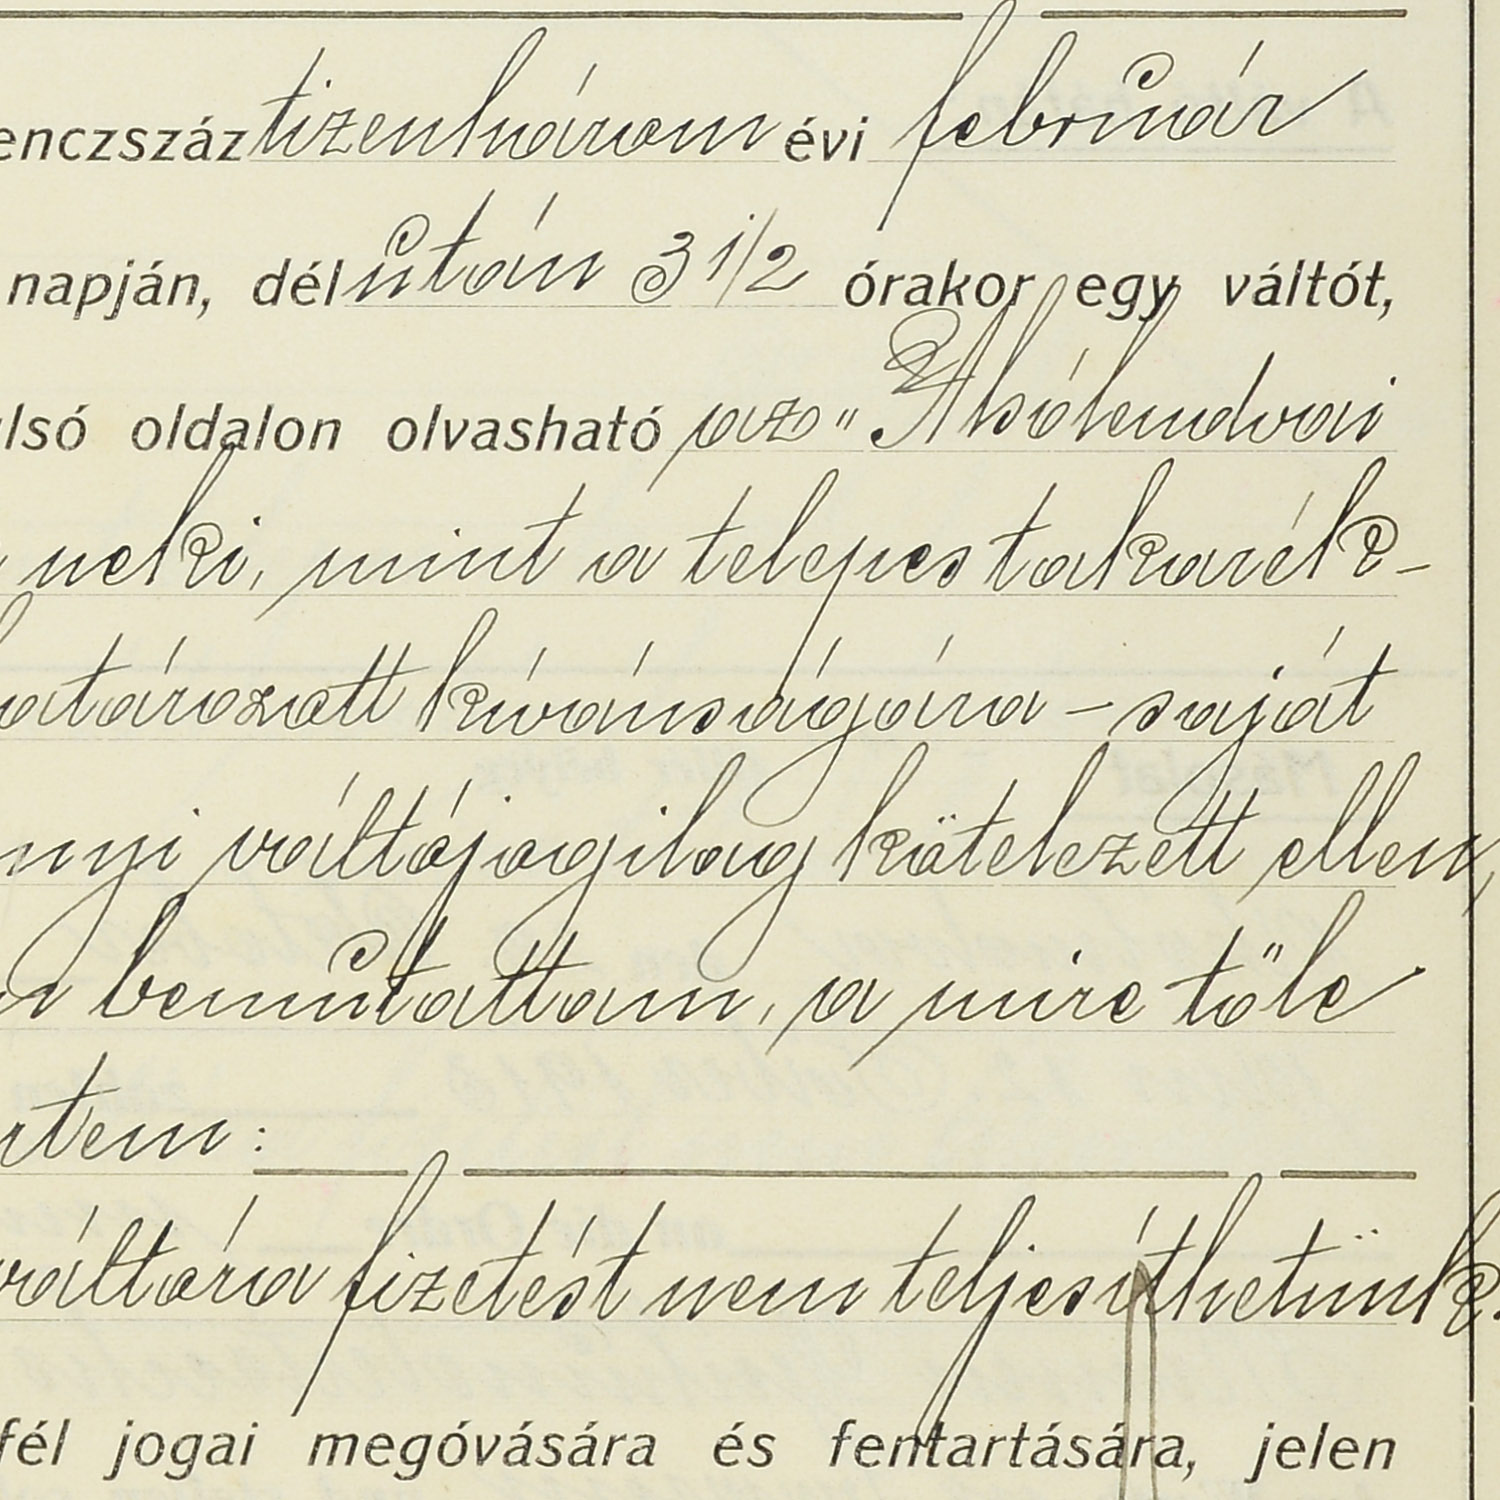 enczszáz tizenhárom évi február
napján, délután 3 1/2 órakor egy váltót,
lsó oldalon olvasható az "Alsólendvai
neki, mint a telepes takarék-
atározott kívánságára – saját
nyi váltójogilag kötelezett ellen,
bemutattam, a mire tőle
rtem:
váltóra fizetést nem teljesíthetünk.
fél jogai megóvására és fentartására, jelen